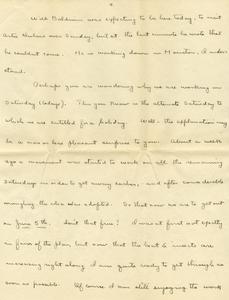 Will Baldwin was expecting to be here today, to visit
Artie Holmes over Sunday, but at the last minute he wrote that
he couldn't come. He is working down in Houston, I under-
stand.
Perhaps you are wondering why we are working on
Saturday (today). This you know is the alternate Saturday to
which we are entitled for a holiday. Well - the explanation may
be a more or less pleasant surprise to you. About a week
ago a movement was started to work on all the remaining
Saturdays in order to get away earlier, and after considerable
wrangling the idea was adopted. So that now we are to get out
on June 5th. Isn't that fine? I was at first not
in favor of the plan, but now that the heat & insects are
increasing right along I am quite ready to get through as
soon as possible. Of course I am still enjoying the work